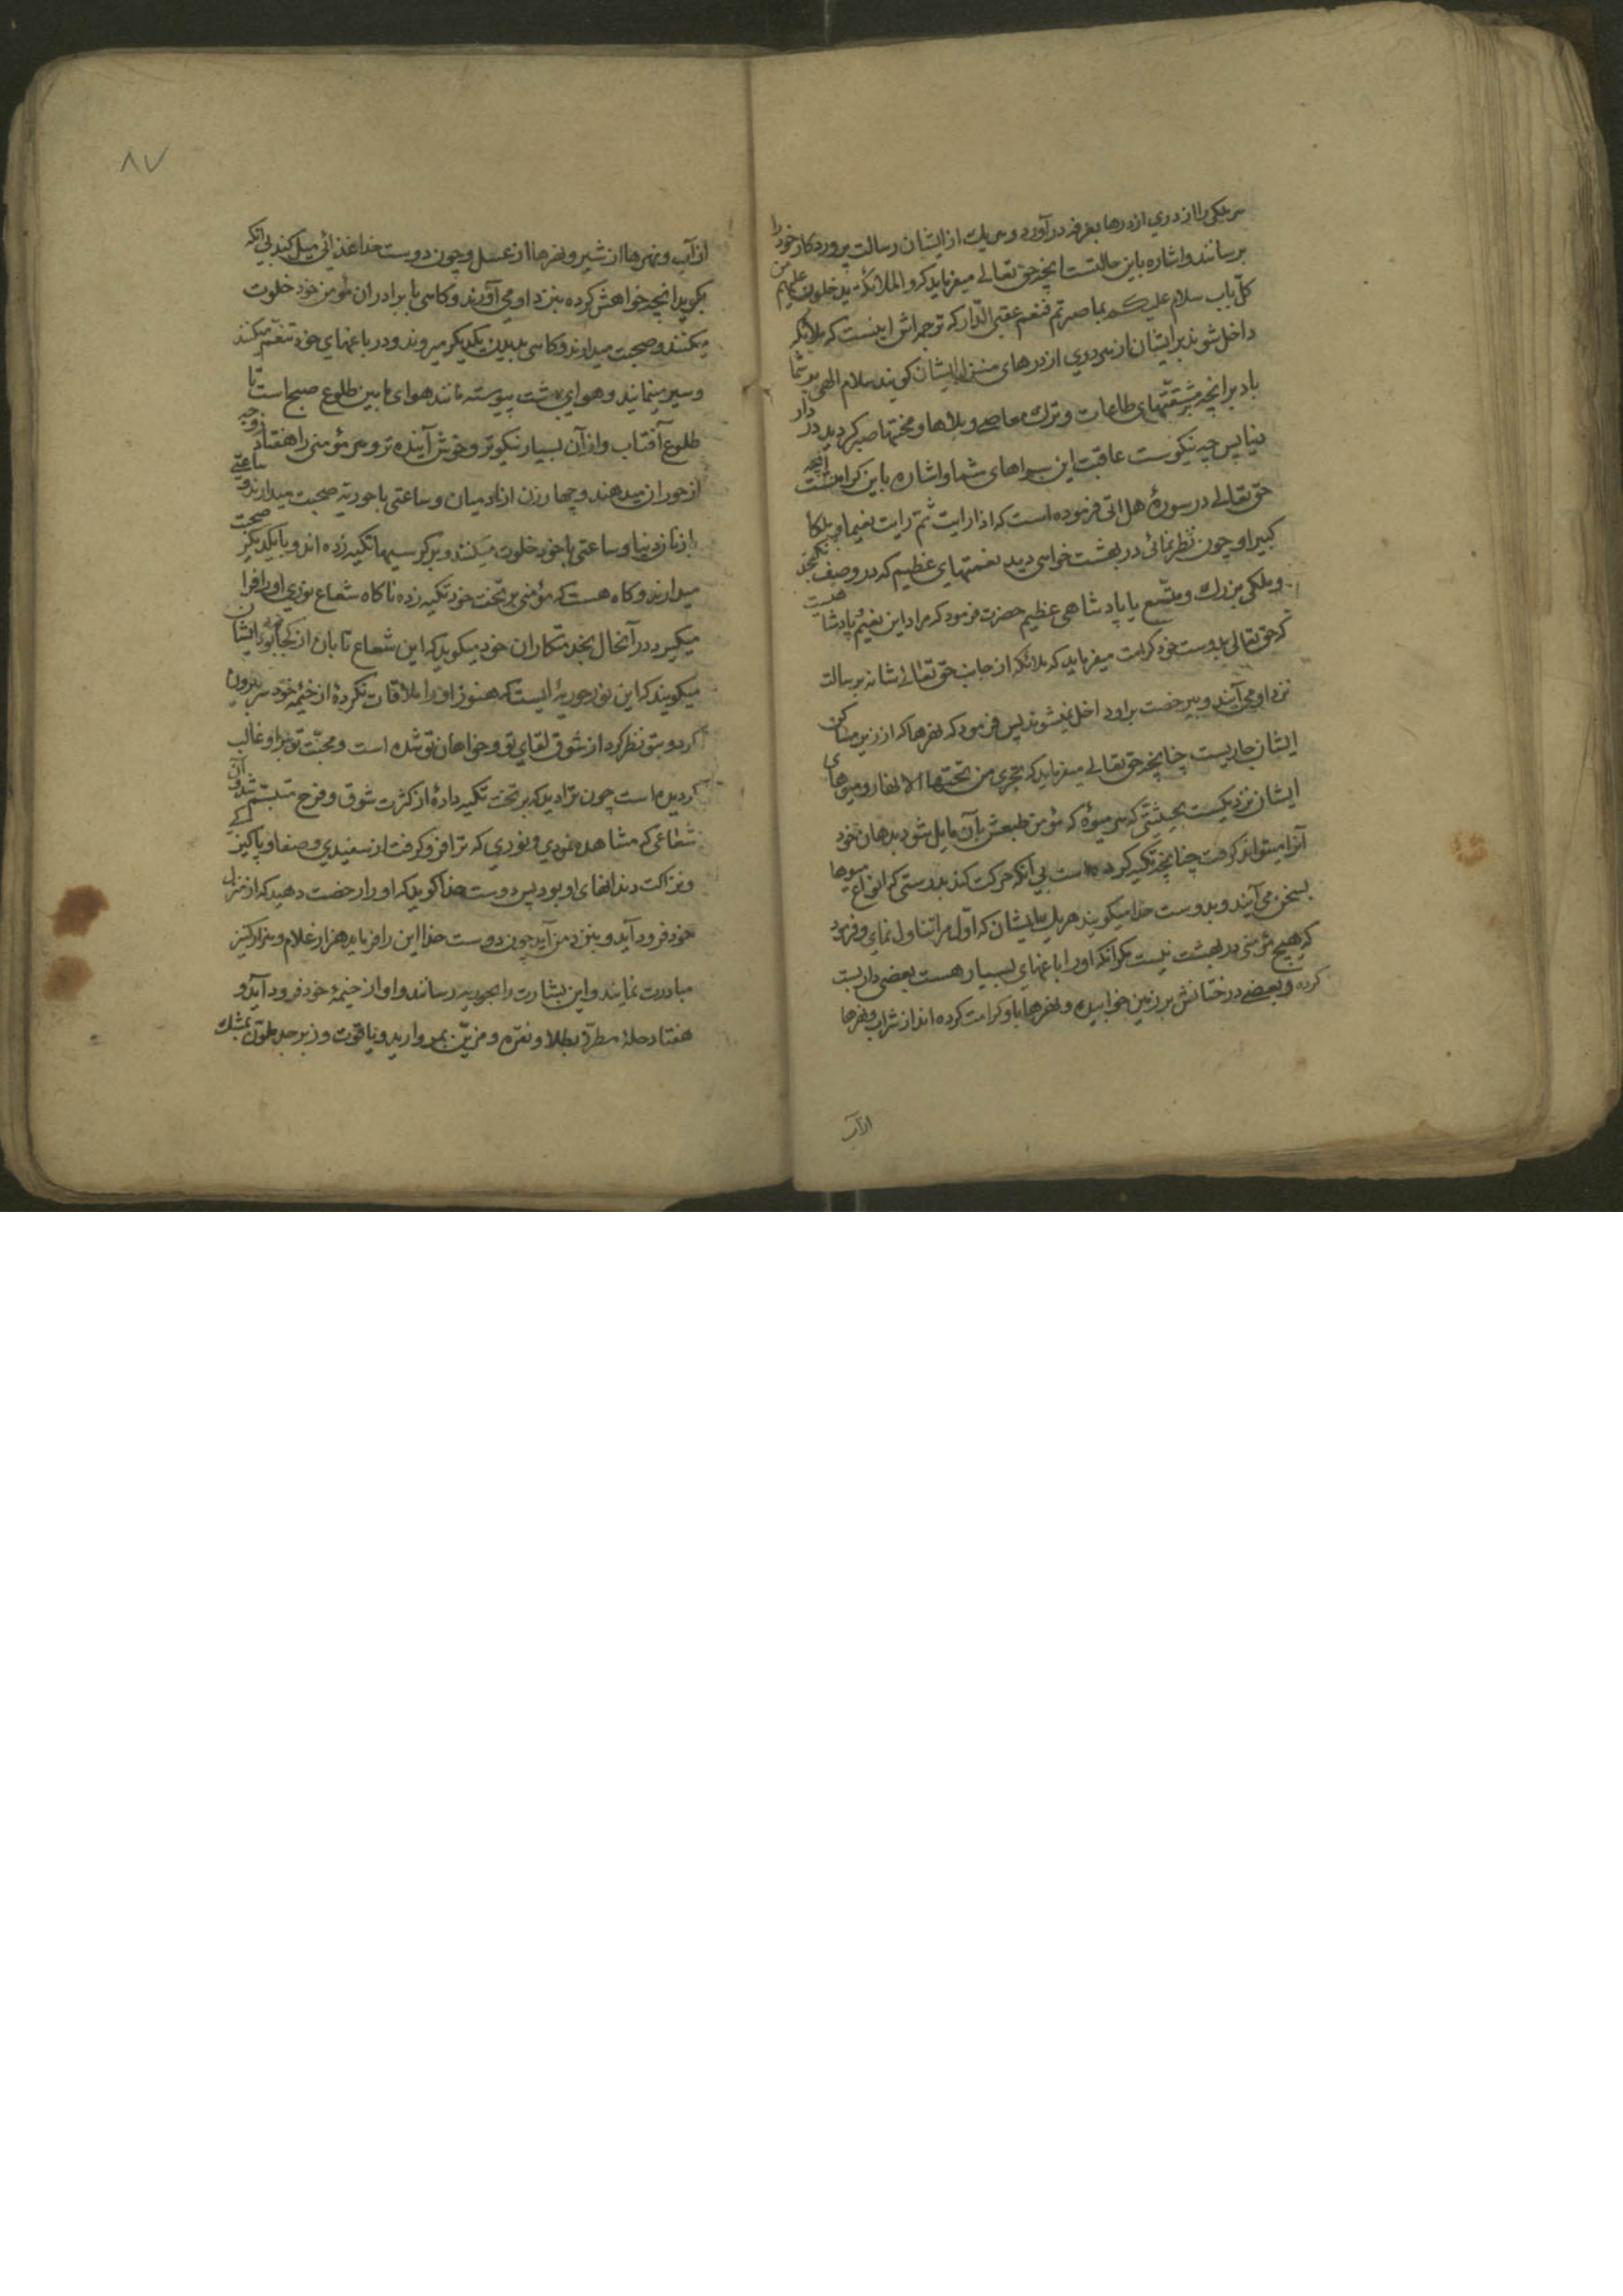 هر یکی را از دری از درها بغرفه در آورد و هر یک از ایشان رسالت پروردکار خود را
برسانند و اشاره باین حالتست انچه حق تعالی میفرماید که و الملائکة یدخلون علیهم من
کلّ باب سلام علیکم بما صبرتم فنعم عقبی الدّار که ترجمه اش اینست که ملائکه
داخل شوند بر ایشان از هر دری از درهای منزل ایشان کویند سلام الهی بر شما
باد بر انچه بر مشقّتهای طاعات و ترک معاصی و بلاها و محنتها صبر کردید در دار
دنیا پس چه نیکوست عاقبت این سراهای شما و اشاره باین کرامتست انچه
حق تعالی در سورۀ هل اتی فرموده است که اذا رایت ثمّ رایت نعیما و ملکا
کبیرا و چون نظر نمائی در بهشت خواهی دید نعمتهای عظیم که در وصف نکنجد
و ملکی بزرک و متّسع یا پادشاهی عظیم حضرت فرمود که مراد این نعیم و پادشاهیست
که حق تعالی بدوست خود کرامت میفرماید که ملائکه از جانب حق تعالی شانه برسالت
نزد او می آیند و بی رخصت بر او داخل نمیشوند پس فرمود که نهرها که از زیر مساکن
ایشان جاریست چنانچه حق تعالی میفرماید که تجری من تحتها الانهار و میوهای
ایشان نزدیکست بحیثیتی که هر میوۀ که مؤمن طبعش بآن مایل شود بدهان خود
آنرا میتواند کرفت چنانچه تکیه کرده است بی آنکه حرکت کند بدرستی که انواع میوها
بسخن می آیند و بدوست خدا میکویند هر یک از ایشان که اوّل مرا تناول نمای و فرمود
که هیچ مؤمنی در بهشت نیست مکر آنکه او را باغهای بسیار هست بعضی داربست
کرده و بعضی درختانش بر زمین خوابیده و نهرها باو کرامت کرده اند از شراب و نهرها
از آب
۸۷
از آب و نهرها از شیر و نهرها از عسل و چون دوست خدا غذائی میل کند بی آنکه
بکوید انچه خواهش کرده بنزد او می آورند و کاهی با برادران مؤمن خود خلوت
میکنند و صحبت میدارند و کاهی بدیدن یکدیکر میروند و در باغهای خود تنعّم میکنند
و سیر مینمایند و هوای بهشت پیوسته مانند هوای مابین طلوع صبح است تا
طلوع آفتاب و از آن بسیار نیکوتر و خوش آینده تر و هر مؤمنی را هفتاد زوجه
از حوران میدهند و چهار زن از ادمیان و ساعتی با حوریّه صحبت میدارند و ساعتی
با زنان دنیا و ساعتی با خود خلوت میکنند و بر کرسیها تکیه زده اند و با یکدیکر صحبت
میدارند و کاه هست که مؤمنی بر تخت خود تکیه زده ناکاه شعاع نوری او را فرا
میکیرد در آنحال بخدمتکاران خود میکوید که این شعاع تابان از کجا بود ایشان
میکویند که این نور حوریۀ ایست که هنوز او را ملاقات نکردۀ از خیمۀ خود سر بیرون
کرد و بتو نظر کرد از شوق لقای تو و خواهان تو شده است و محبّت تو بر او غالب
کردیده است چون ترا دید که بر تخت تکیه دادۀ از کثرت شوق و فرح متبسّم شد و آن
شعاعی که مشاهده نمودی و نوری که ترا فرو کرفت از سفیدی و صفا و پاکیزکی
و نزاکت دندانهای او بود پس دوست خدا کوید که او را رخصت دهید که از منزل
خود فرود آید و بنزد من آید چون دوست خدا این را فرماید هزار غلام و هزار کنیز
مبادرت نمایند و این بشارت را بحوریه رسانند و او از خیمۀ خود فرود آید و
هفتاد حلۀ مطرّز بطلا و نقره و مزیّن بمروارید و یاقوت و زبرجد ملوّن بمشک